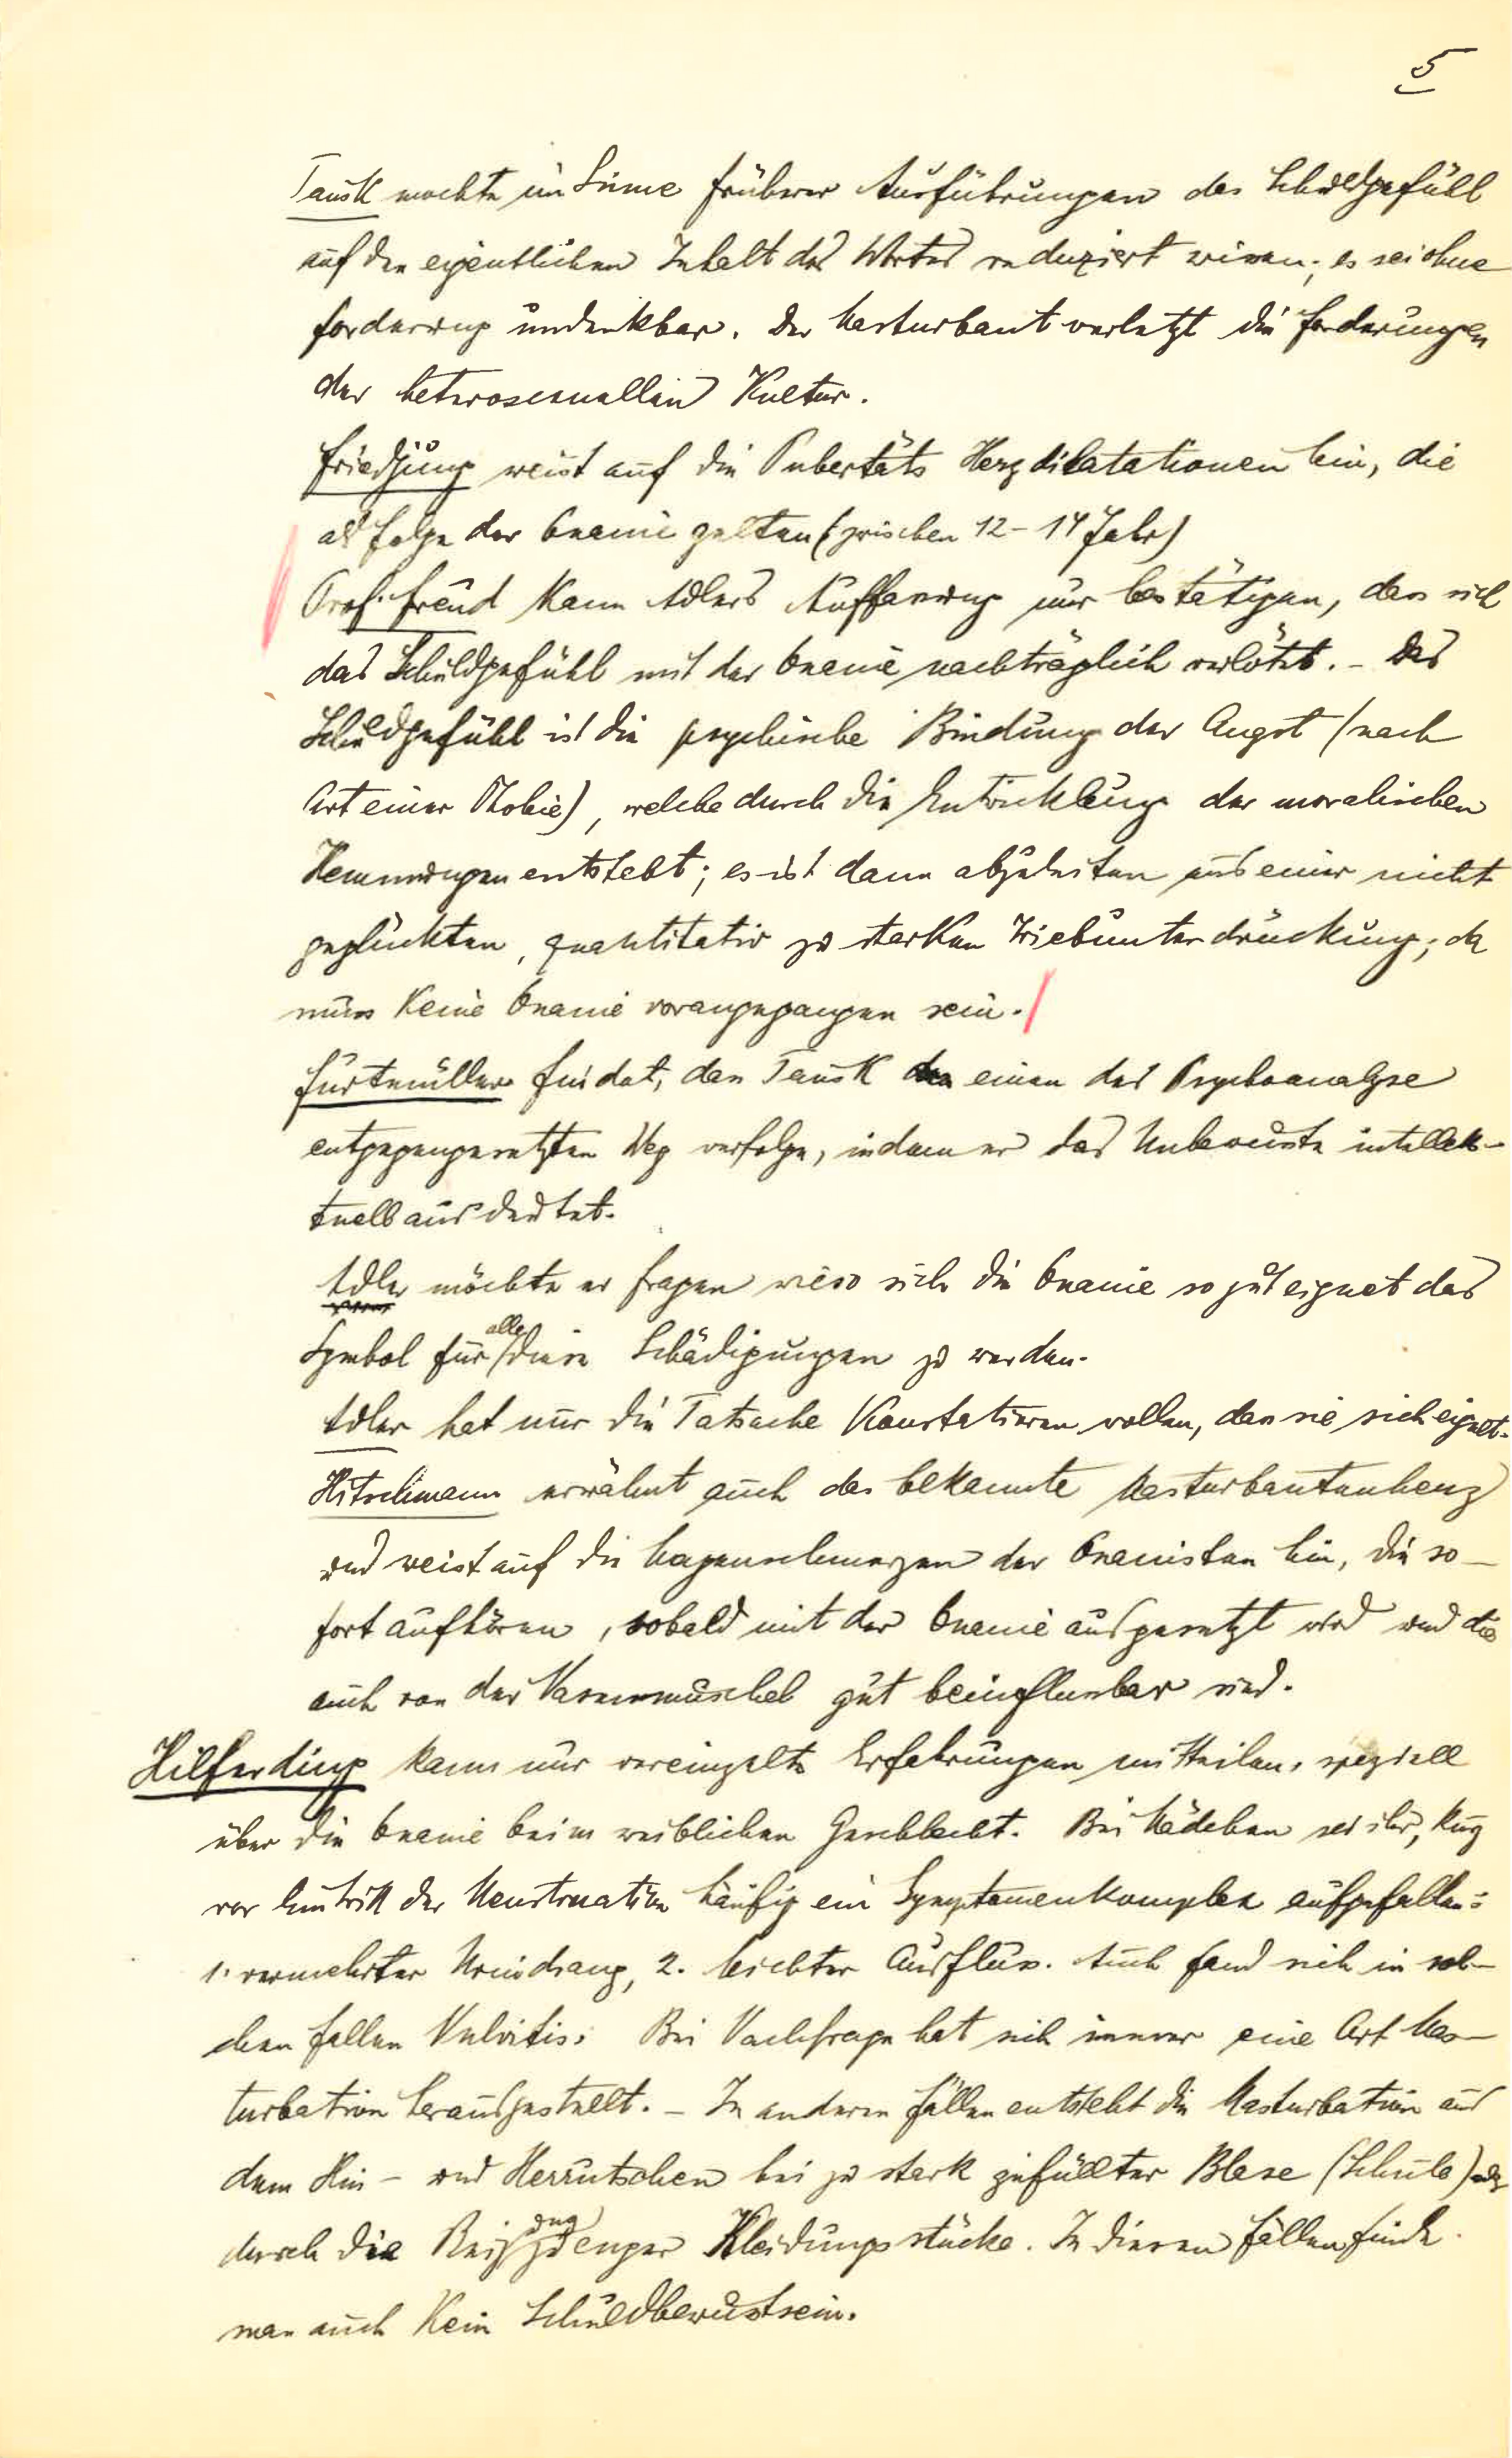 5
Tausk mochte im Sinne früherer Ausführungen das Schuldgefühl
auf den eigentlichen Inhalt des Wortes reduziert wissen; es sei ohne
Forderung undenkbar. Der Masturbant verletzt die Forderungen
der heterosexuellen Kultur.
Friedjung weist auf die Pubertäts Herzdilatationen hin, die
als Folge der Onanie gelten (zwischen 12–14 Jahr)
Prof. Freud kann Adlers Auffassung nur bestätigen, dass sich
das Schuldgefühl mit der Onanie nachträglich verlötet. – Das
Schuldgefühl ist die psychische Bindung der Angst (nach
Art einer Phobie), welche durch die Entwicklung der moralischen
Hemmungen entsteht; es ist dann abzuleiten aus einer nicht
geglückten, quantitativ zu starken Triebunterdrückung; da
muss keine Onanie vorangegangen sein.
Furtmüller findet, dass Tausk einen der Psychoanalyse
entgegengesetzten Weg verfolge, indem er das Unbewusste intellek-
tuell ausdeutet.
Adler möchte er fragen wieso sich die Onanie so gut eignet das
Symbol für alle diese Schädigungen zu werden.
Adler hat nur die Tatsache konstatieren wollen, dass sie sich eignet.
Hitschmann erwähnt auch das bekannte Masturbantenherz
und weist auf die Magenschmerzen der Onanisten hin, die so-
fort aufhören, sobald mit der Onanie ausgesetzt wird und die
auch von der Nasenmuschel gut beeinflussbar sind.
Hilferding kann nur vereinzelte Erfahrungen mitteilen, speziell
über die Onanie beim weiblichen Geschlecht. Bei Mädchen sei ihr, kurz
vor Eintritt der Menstruation häufig ein Symptomenkomplex aufgefallen:
1. vermehrter Urindrang, 2. leichter Ausfluss. Auch fand sich in sol-
chen Fällen Vulvitis. Bei Nachfrage hat sich immer eine Art Mas-
turbation herausgestellt. – In anderen Fällen entsteht die Masturbation aus
dem Hin- und Herrutschen bei zu stark gefüllter Blase (Schule) oder
durch die Reizung zu enger Kleidungsstücke. In diesen Fällen finde
man auch kein Schuldbewusstsein.